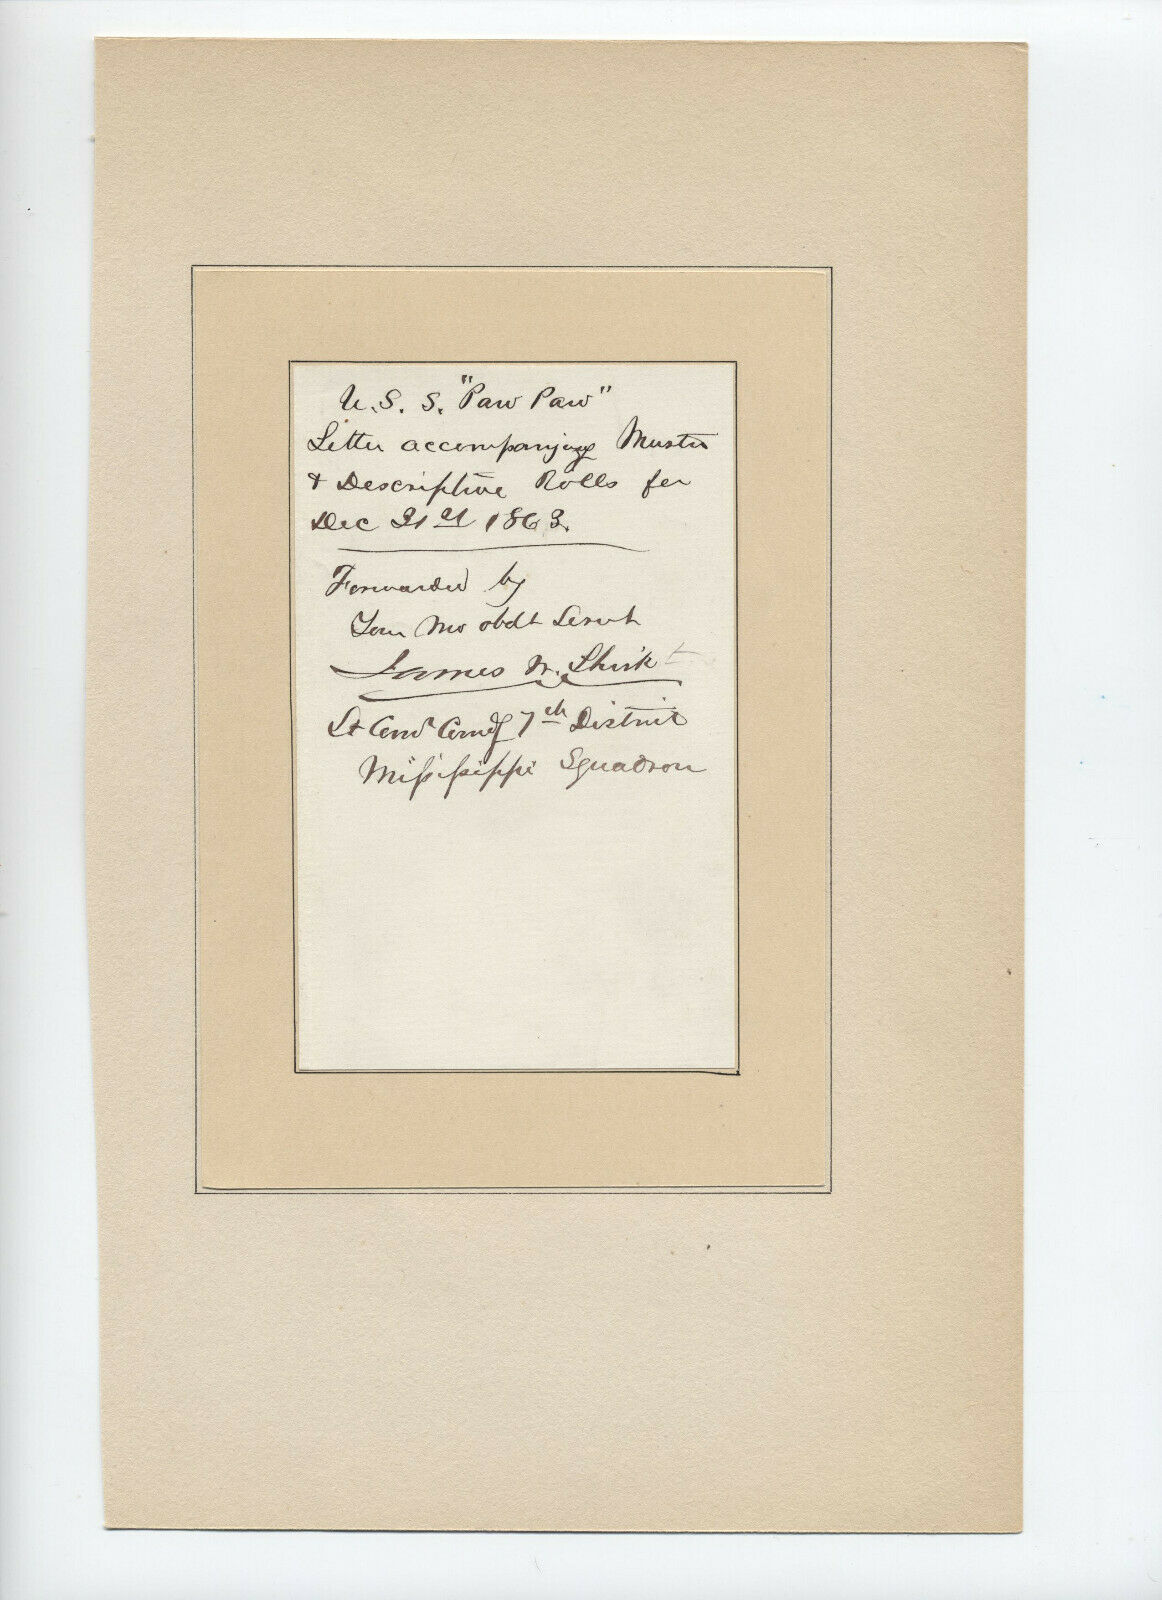 U. S. S. "Paw Paw"
Letter accompanying Muster
& Descriptive Rolls for
Dec 31st 1863.
Forwarded by
Your Mo obdt Servt
James W. Shirk
Lt Comdr Comdg 7th District
Mississippi Squadron